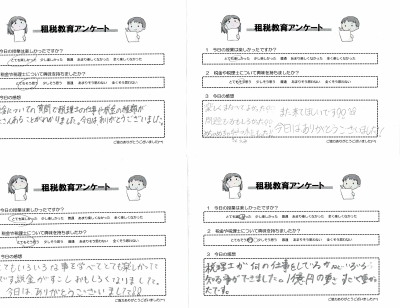 租税教育アンケート
1 今日の授業は楽しかったですか?
とても楽しかった 少し楽しかった 普通 あまり楽しくなかった 全く楽しくなかった
2 税金や税理士について興味を持ちましたか?
とてもそう思う 少しそう思う 普通 あまりそう思わない 全くそう思わない
今日の感想
ついての質問で税理士の仕事や税金の種類が
さんあることがわかりました。今日はありがとうございました。
ご協力ありがとうございました!
租税教育アンケート
1 今日の授業は楽しかったですか?
とても楽しかった 少し楽しかった 普通 あまり楽しくなかった 全く楽しくなかった
2 税金や税理士について興味を持ちましたか?
とてもそう思う 少しそう思う 普通 あまりそう思わない 全くそう思わない
3 今日の感想
また来てほしいです
今日はありがとうございました!
ご協力ありがとうございました!
租税教育アンケート
今日の授業は楽しかったですか?
とても楽しかった 少し楽しかった 普通 あまり楽しくなかった 全く楽しくなかった
税金や税理士について興味を持ちましたか?
とてもそう思う 少しそう思う 普通 あまりそう思わない 全くそう思わない
今日の感想
とてもいろいろな事を学べてとても楽しかったで
す。税金がすこしおもしろくなりました。
今日はありがとうございました
ご協力ありがとうございました!
租税教育アンケート
1 今日の授業は楽しかったですか?
とても楽しかった 少し楽しかった 普通 あまり楽しくなかった 全く楽しくなかった
2 税金や税理士について興味を持ちましたか?
とてもそう思う 少しそう思う 普通 あまりそう思わない 全くそう思わない
3 今日の感想
税理士が何の仕事をしているか、いろいろ
知る事ができました。1億円の重さ
ご協力ありがとうございました!